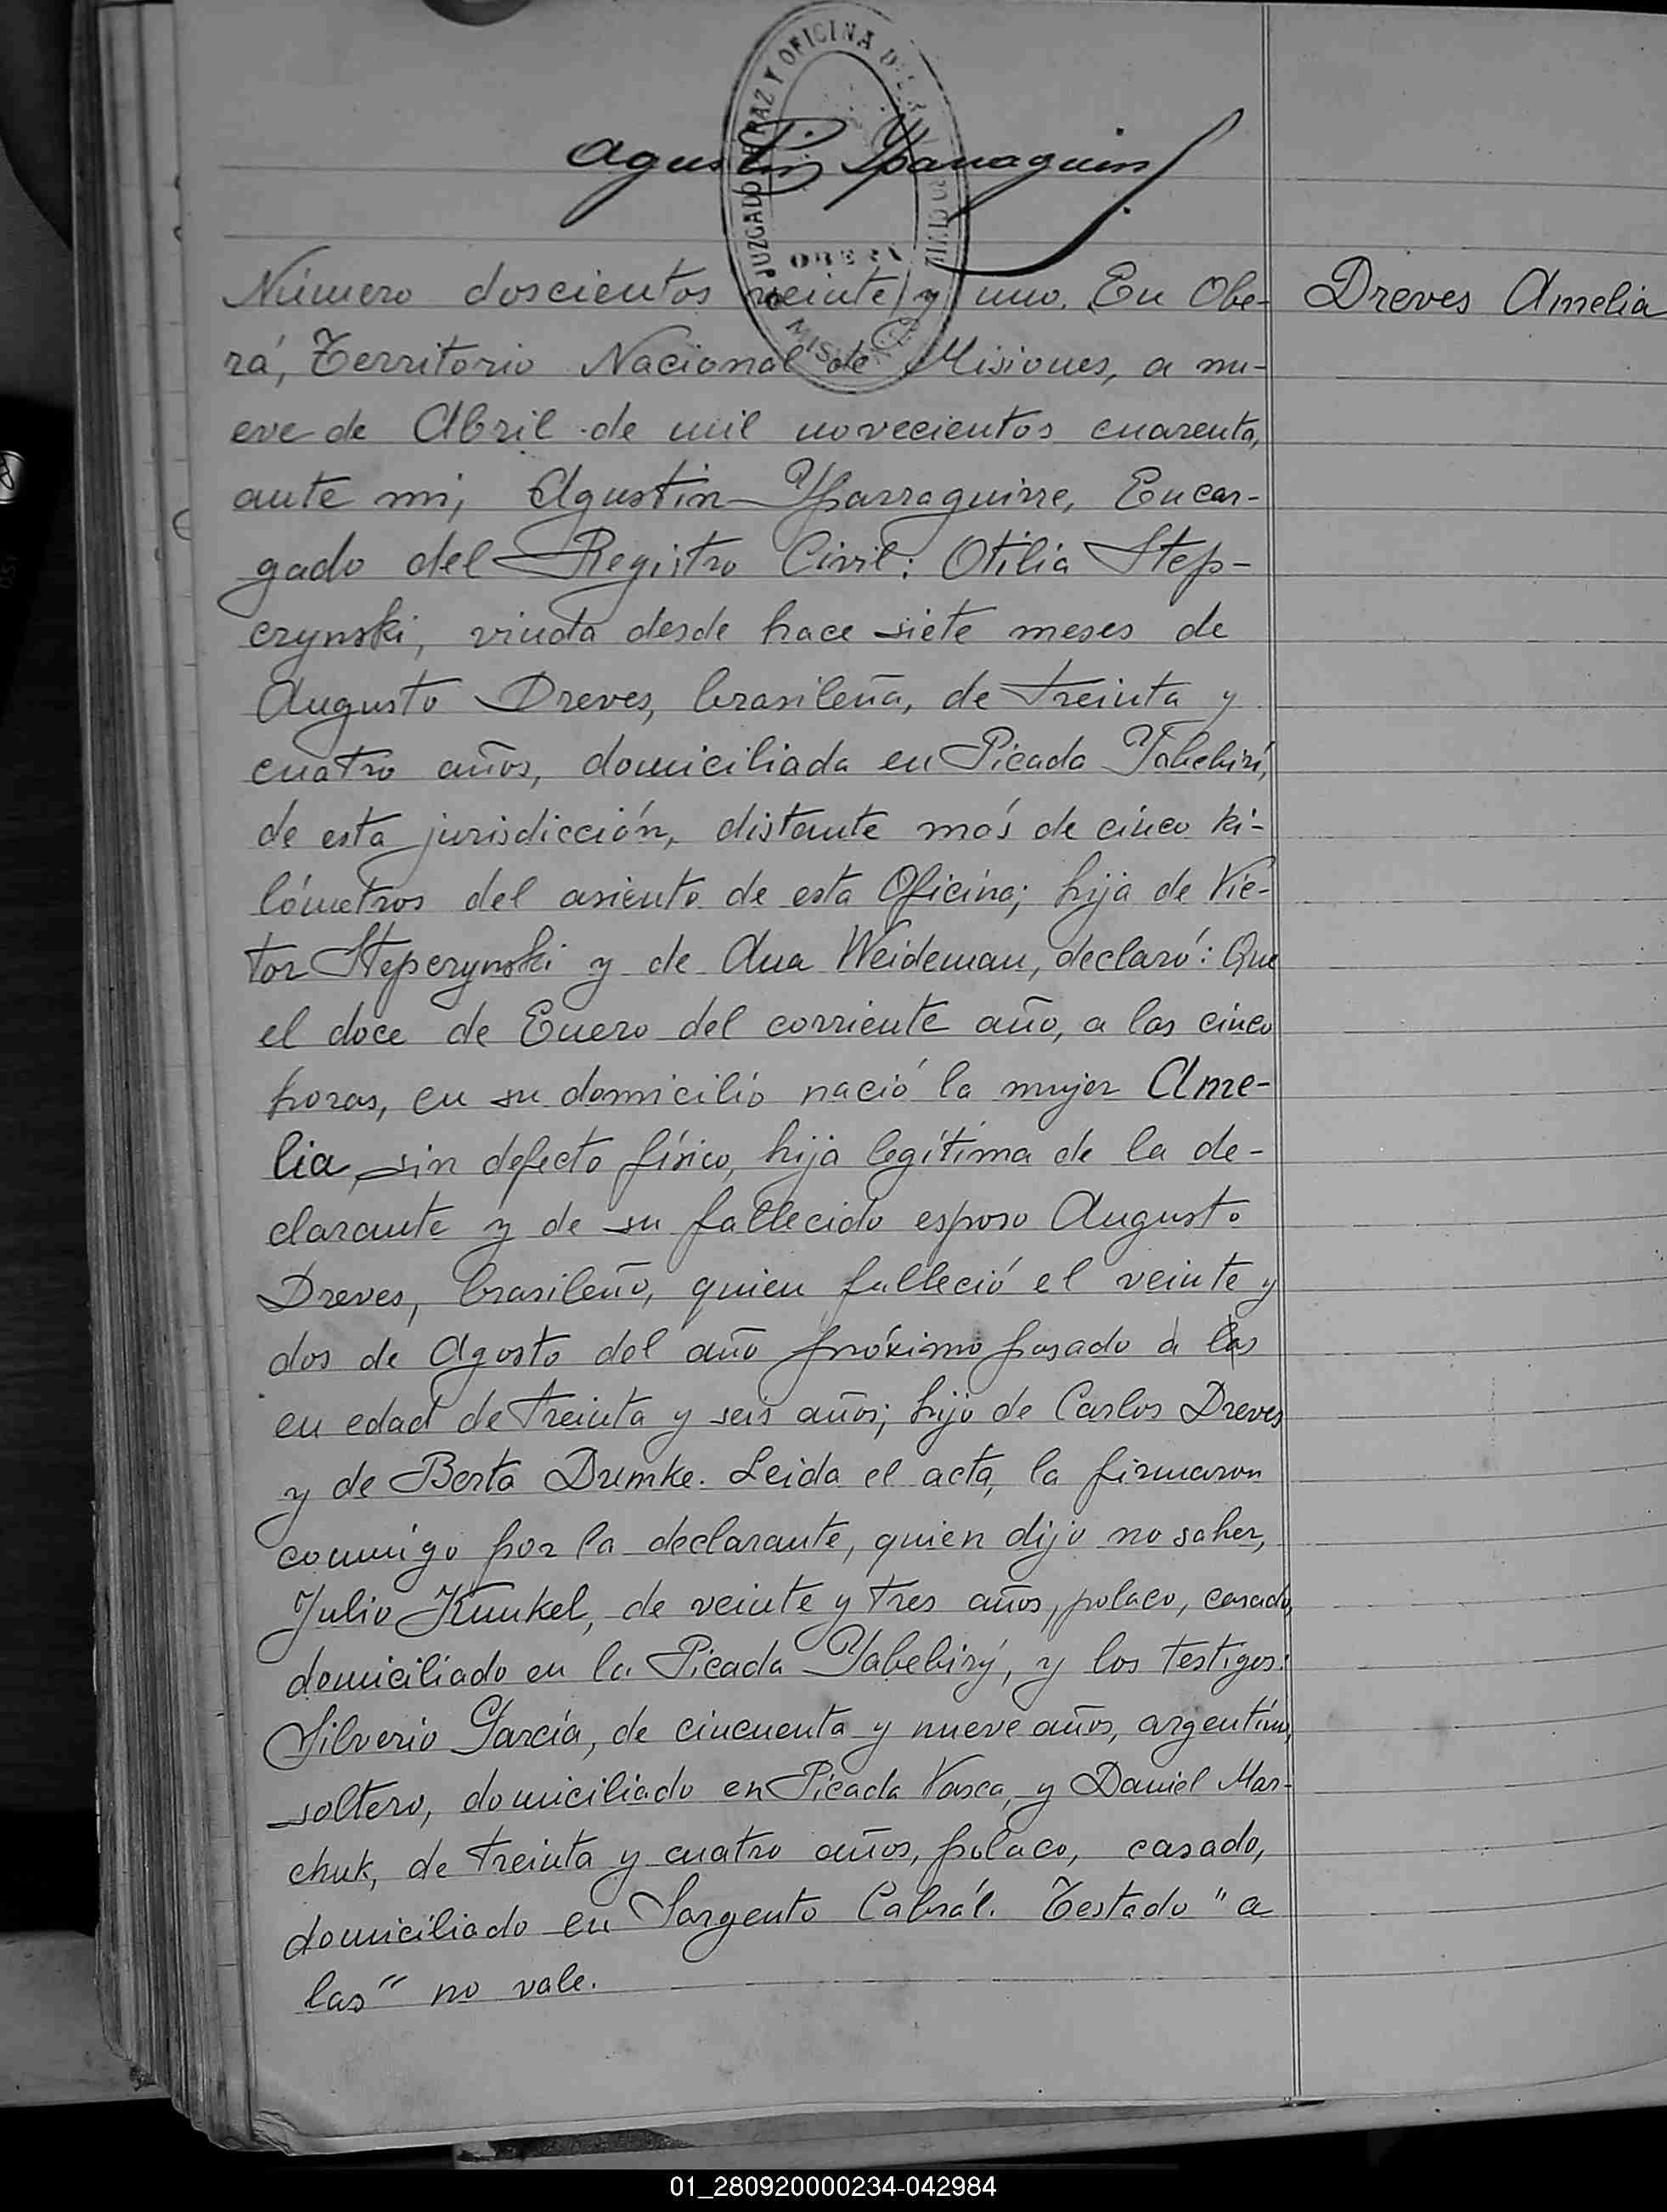 JUZGADO DE PAZ Y OFICINA DEL REGISTRO CIVIL
Agustin Yparraguirre
OBERÁ
MISIONES
Número doscientos veinte y uno. En Obe-
Dreves Amelia
rá, Territorio Nacional de Misiones, a nu-
eve de Abril de mil novecientos cuarenta,
ante mi, Agustin Yparraguirre, Encar-
gado del Registro Civil: Otilia Step-
czynski, viuda desde hace siete meses de
Augusto Dreves, brasileña, de treinta y
cuatro años, domiciliada en Picada Yabebirí,
de esta jurisdicción, distante más de cinco ki-
lómetros del asiento de esta Oficina; hija de Vic-
tor Stepczynski y de Ana Weideman, declaró: Que
el doce de Enero del corriente año, a las cinco
horas, en su domicilio nació la mujer Ame-
lia, sin defecto físico, hija legítima de la de-
clarante y de su fallecido esposo Augusto
Dreves, brasileño, quien falleció el veinte y
dos de Agosto del año próximo pasado a las
en edad de treinta y seis años; hijo de Carlos Dreves
y de Berta Dumke. Leida el acta, la firmaron
conmigo por la declarante, quien dijo no saber,
Julio Kunkel, de veinte y tres años, polaco, casado,
domiciliado en la Picada Yabebirý, y los testigos:
Silverio García, de cincuenta y nueve años, argentino,
soltero, domiciliado en Picada Vasca, y Daniel Mar-
chuk, de treinta y cuatro años, polaco, casado,
domiciliado en Sargento Cabrál. Testado "a
las" no vale.
01_280920000234-042984